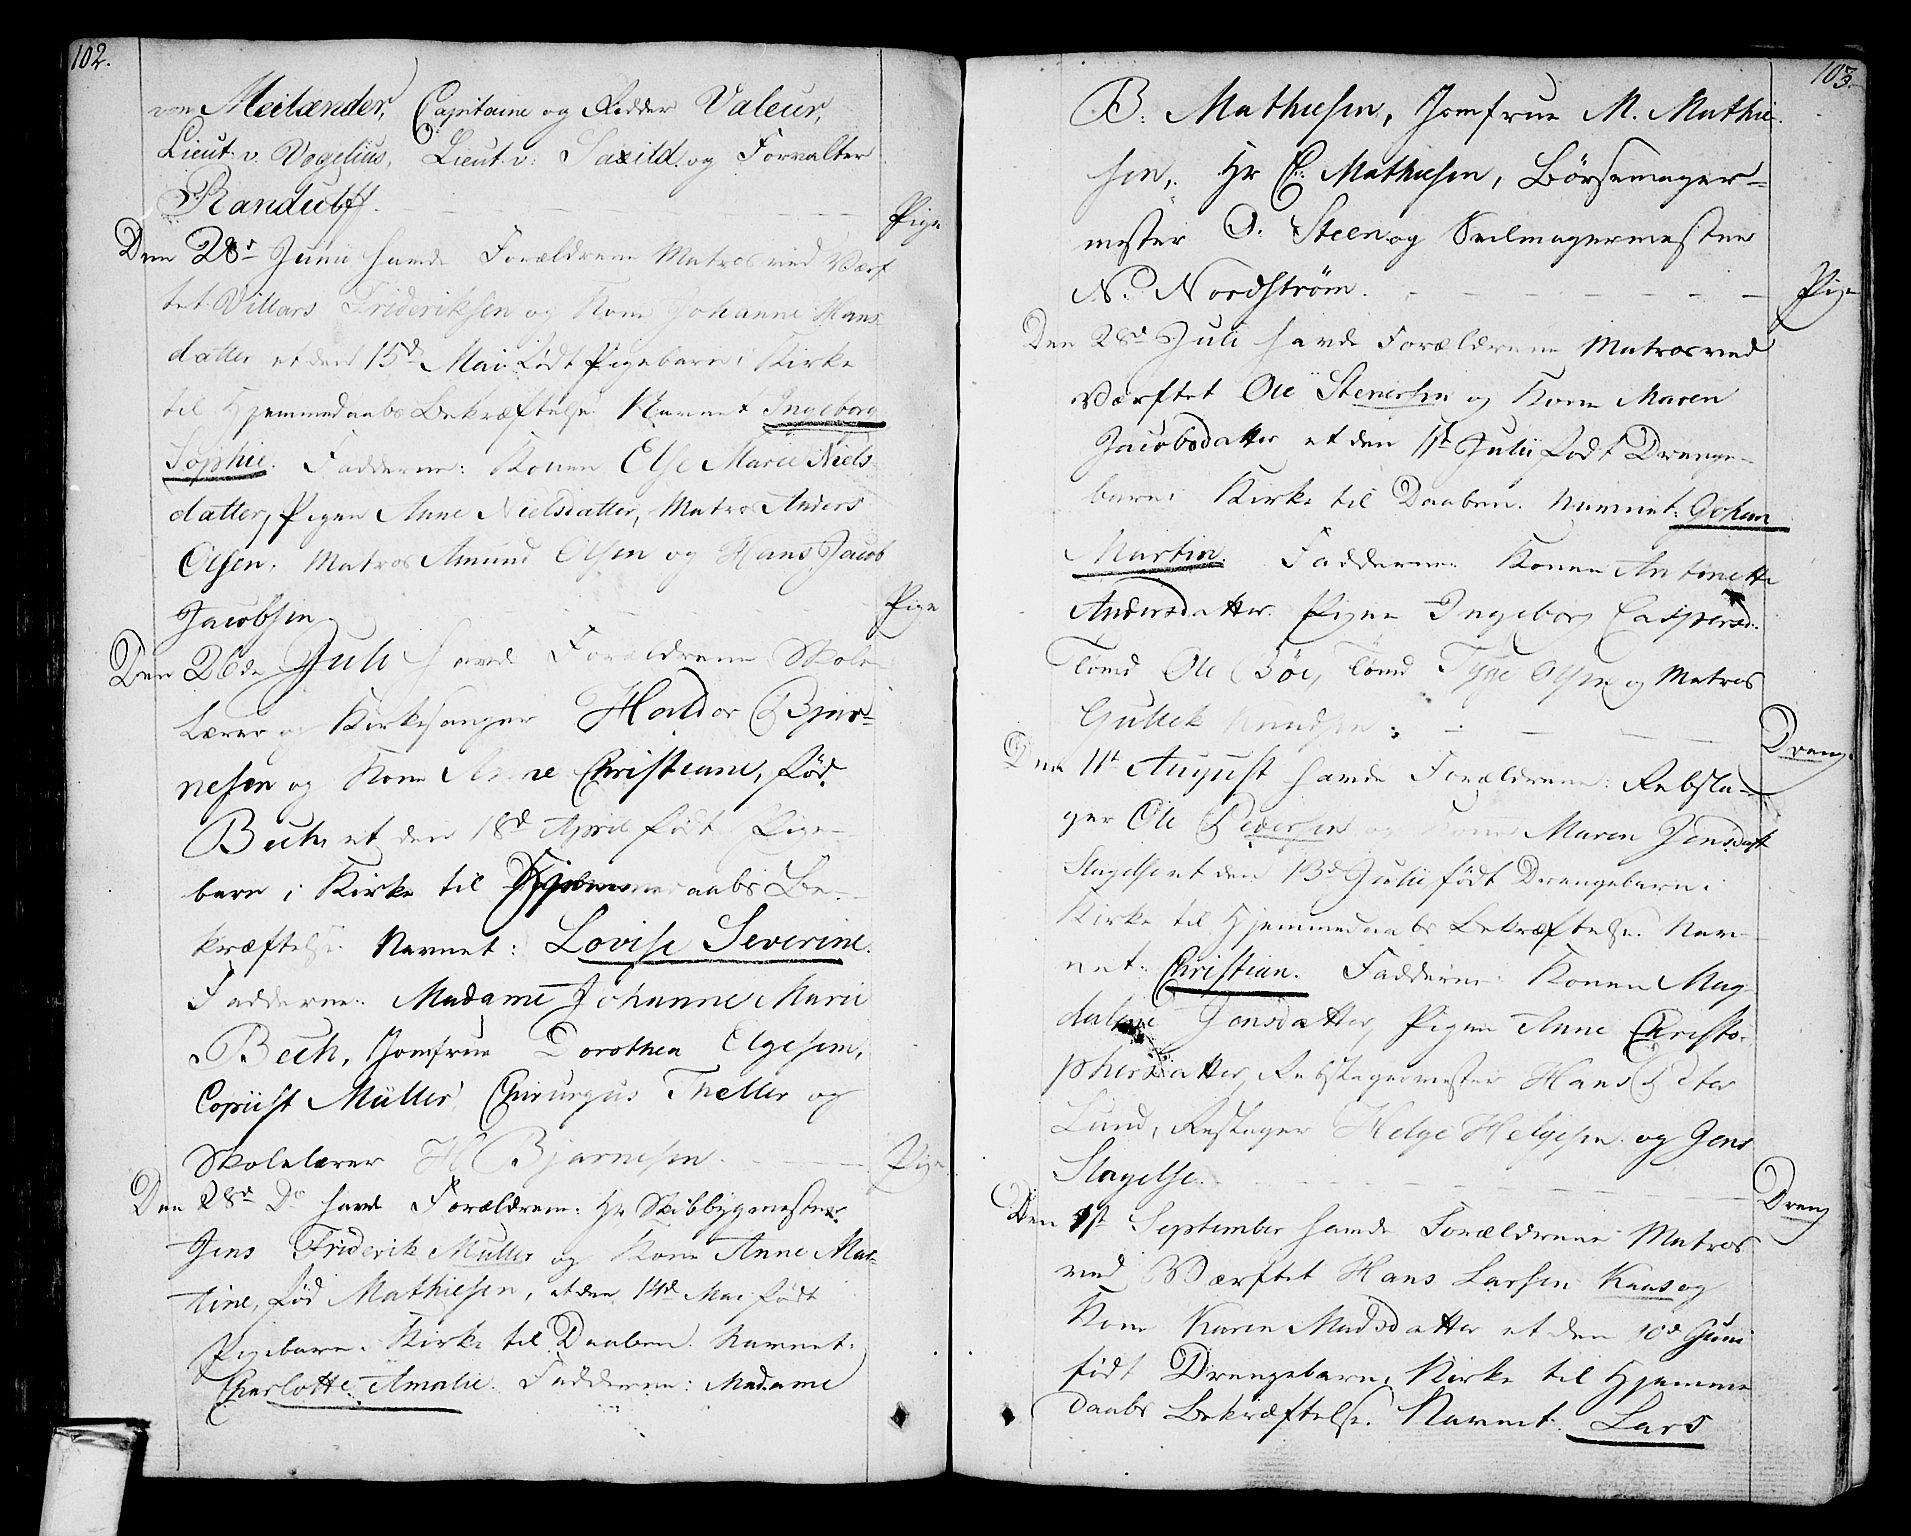 102.
von Meilænder, Capitaine og Ridder Valeur,
Lieut. v. Vogelius, Lieut. v. Saxild og Forvalter
Randulff.
Pige
Den 28de Junii havde Forældrene Matros ved Værf
tet Villars Frideriksen og Kone Johanne Hans
datter et den 15de Mai født Pigebarn i Kirke
til Hjemmedaabs Bekræftelse Navnet Ingeborg
Sophie. Fadderne: Konen Else Marie Niels
datter, Pigen Anne Nielsdatter, Matros Anders
Olsen, Matros Amund Olsen og Hans Jacob
Jacobsen
Pige
Den 26de Juli havde Forældrene Skole
Lærer og Kirkesanger Haldor Bjar-
nesen og Kone Anne Christiane, fød
Bech et den 18d April født Pige-
barn i Kirke til Hjemmedaabs Be-
kræftelse. Navnet: Lovise Severine.
Fadderne: Madame Johanne Marie
Bech, Jomfrue Dorothea Elgesem,
Copiist Müller, Chirurgus Theller og
Skolelærer H Bjarnesen.
Pige
Den 28d Do havde Forældrene: Hr Skibbygmester
Jens Friderik Müller og Kone Anne Mar-
tine, fød Mathiesen, et den 14d Mai født
Pigebarn i Kirke til Daaben. Navnet:
Charlotte Amalie. Fadderne: Madame
103.
B. Mathiesen, Jomfrue M. Mathie-
sen, Hr C. Mathiesen, Børsemager-
mester O. Steen og Seilmagermester
N. Nordstrøm.
Pige
Den 28d Juli havde Forældrene Matros ved
Værftet Ole Stenersen og Kone Maren
Jacobsdatter et den 11te Julii født Drenge-
barn i Kirke til Daaben. Navnet: Johan
Martin. Fadderne: Konen Antonette
Andersdatter. Pigen Ingeborg Caspersd.
Tømd Ole Bøe, Tømd Tyge Olsen og Matros
Gullek Knudsen.
Dreng.
Den 11te August havde Forældrene: Rebsla-
ger Ole Pedersen og Kone Maren Jensdatt
Slagelse et den 13d Julii født Drengebarn i
Kirke til Hjemmedaabs Bekræftelse. Nav-
net: Christian. Fadderne: Konen Mag
dalene Jonsdatter, Pigen Anne Christo-
phersdatter, Rebslagermester Hans Peter
Lund, Rebslager Helge Helgesen og Jens
Slagelse.
Dreng
Den 1st September havde Forældrene Matros
ved Værftet Hans Larsen Kaas og
Kone Karen Madsdatter et den 10d Juni
født Drengebarn i Kirke til Hjemme
daabs Bekræftelse. Navnet. Lars